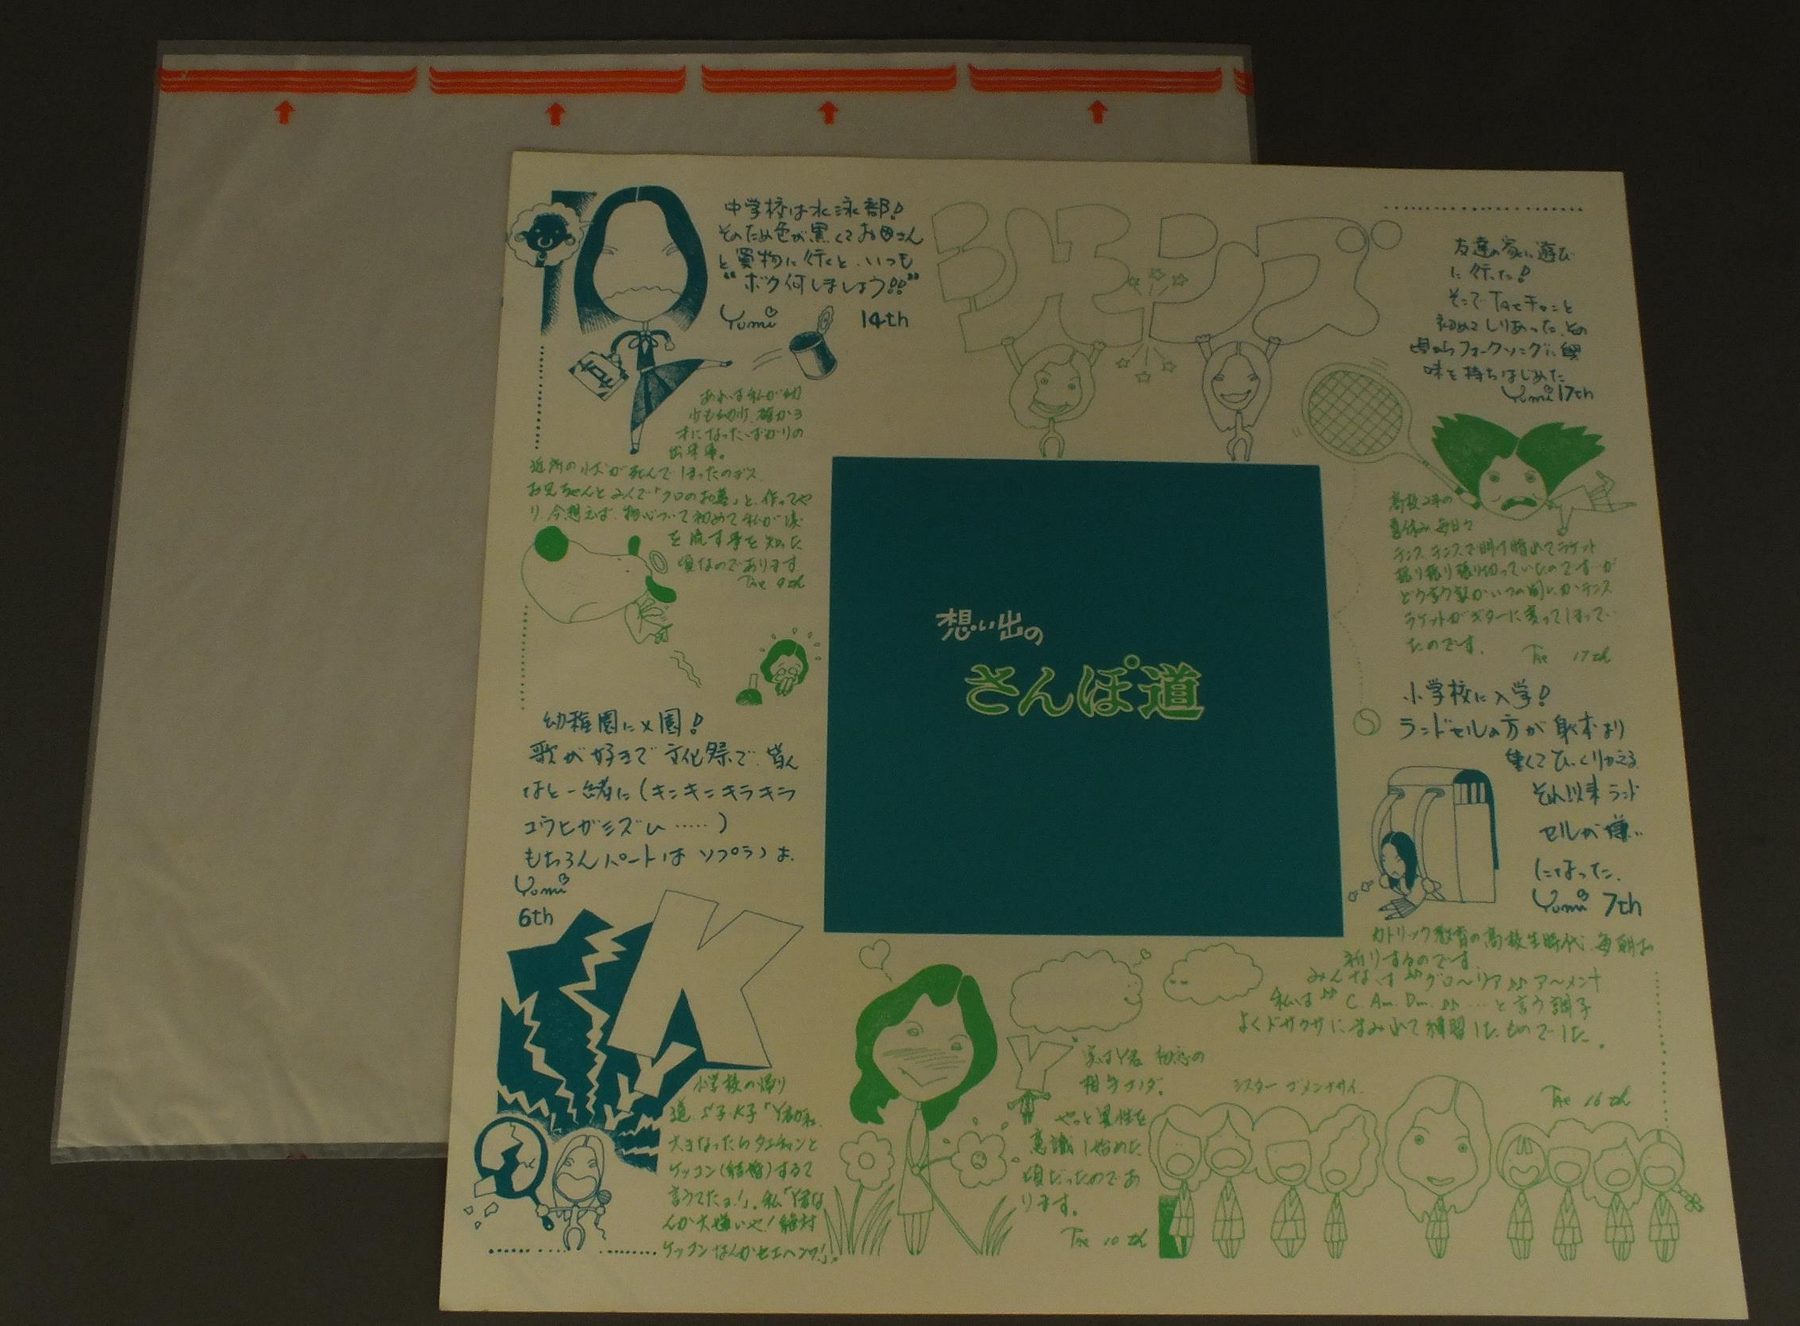 中学校は水泳部!
そのため色が黒くてお母さん
と買物に行くと、いつも
“ボク何しましょう!!”
Yumi 14th
シモンズ
友達の家に遊び
に行った!
そこでTaeチャンと
初めてしりあった。その
日からフォークソングに興
味を持ちはじめた
Yumi 17th
あれは私が幼
少も幼少、確か3
才になったばかりの
出来事。
近所の小犬が死んでしまったのデス
お兄ちゃんとみんで「クロのお墓」と、作ってや
り今想えば、物心ついて初めて私が涙
を流す事を知った
頃なのであります
高校2年の
夏休み毎日々
テニス、テニスで明け暮れてラケット
振り振り張り切っていたのですが
どう学製かいつの間にかテニス
ラケットがギターに変ってしまって
たのです。
Tae 17th
想い出の
さんぽ道
幼稚園に入園!
歌が好きで文化祭で、皆ん
なと一緒に(キンキンキラキラ
ユウヒガシズム……)
もちろんパートはソプラノよ。
Yumi
6th
小学校に入学!
ランドセルの方が身体より
重くてひっくりかえる
それ以来ランド
セルが嫌い
になった。
Yumi 7th
カトリック教育の高校生時代、毎朝お
祈りするのです
みんなは♪グロ〜リア♪♪ア〜メン†
私は♪♪C. Am. Dm. ♪♪…と言う調子
よくドサクサにまみれて練習したものでした。
シスター ゴメンナサイ.
Tae 16th
K
Y
小学校の帰り
道、S子・K子「Y君がね、
大きなったらタエチャンと
ケッコン(結婚)するて
言うてたヨ!」。私「Y君な
んか大嫌いや!絶対
ケッコンなんかセエヘンワ!」。
Y
実はY君 初恋の
相手ナノダ。
やっと異性を
意識し始めた
頃だったのであ
ります。
Tae 10th